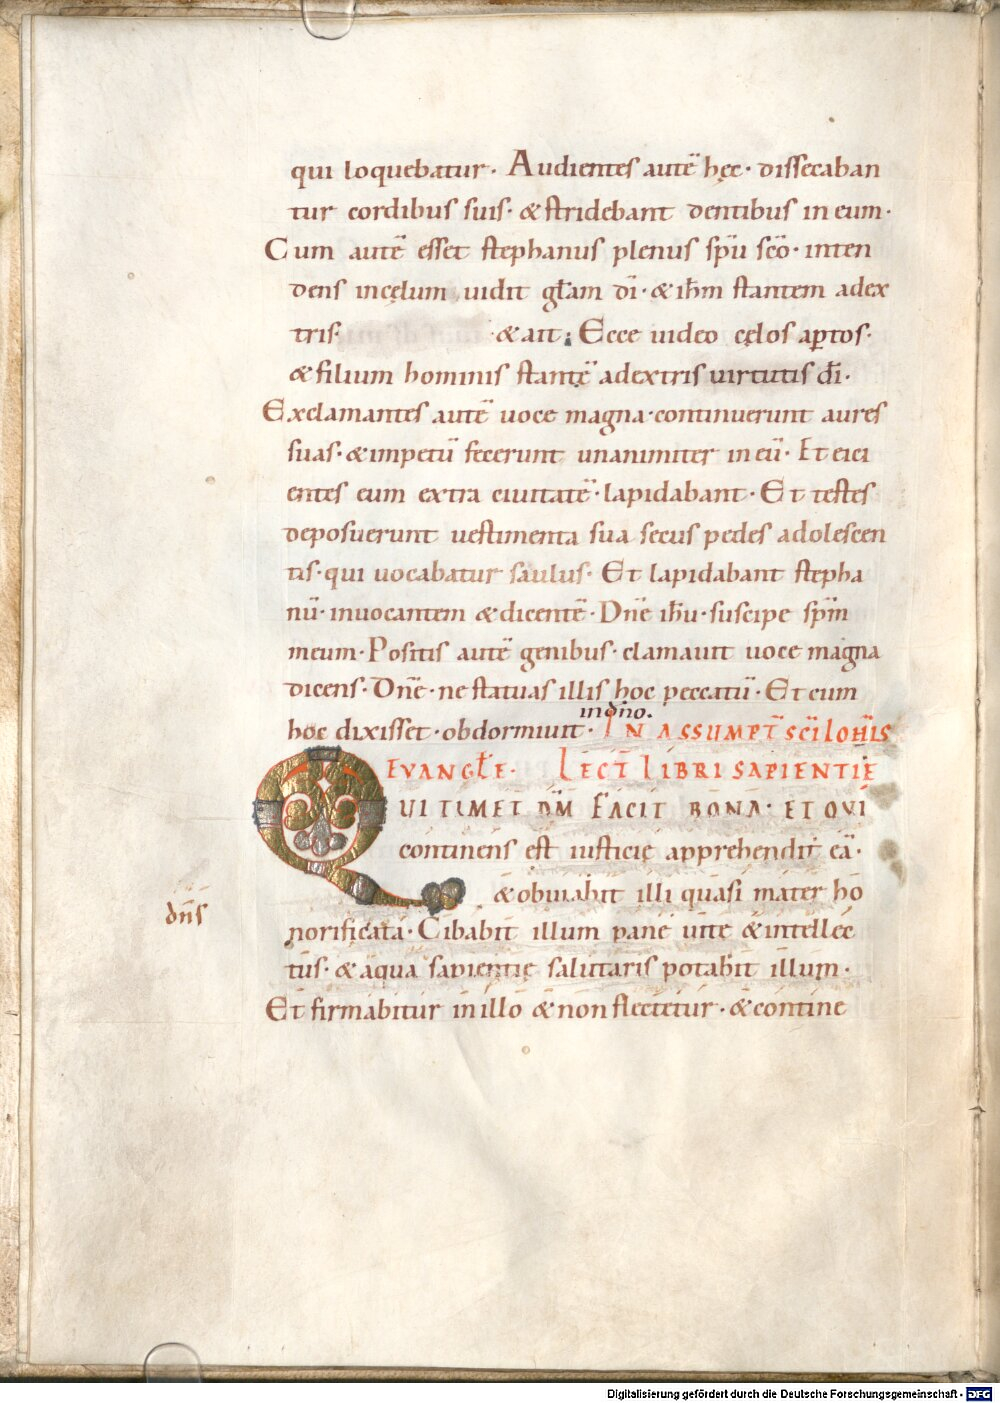 qui loquebatur. Audientes autē hęc. dissecaban
tur cordibus suis. & stridebant dentibus in eum.
Cum autē esset stephanus plenus spū scō. inten
dens incęlum uidit glam dī. & ihm stantem adex
tris. & ait; Ecce uideo cęlos aptos.
& filium hominis stantē adextris uirtutis dī.
Exclamantes autē uoce magna. continuerunt aures
suas. & impetū fecerunt unanimiter in eū. Et eici
entes eum extra ciuitatē. lapidabant. Et testes
deposuerunt uestimenta sua secus pedes adolescen
tis. qui uocabatur saulus. Et lapidabant stepha
nū. inuocantem & dicentē. Dnē ihū. suscipe spm
meum. Positis autē genibus. clamauit uoce magna
dicens. Dnē. ne statuas illis hoc peccatū. Et cum
hoc dixisset. obdormiuit. in dno. IN ASSUMPT SCI IOHIS
EVANGLE. LECT LIBRI SAPIENTIE
QUI TIMET DM FACIT BONA. ET QUI
continens est iusticię apprehendit eā.
& obuiabit illi quasi mater ho
dns
norificata. Cibabit illum pane uitę & intellec
tus. & aqua sapientię salutaris potabit illum.
Et firmabitur in illo & non flectetur. & contine
Digitalisierung gefördert durch die Deutsche Forschungsgemeinschaft - DFG